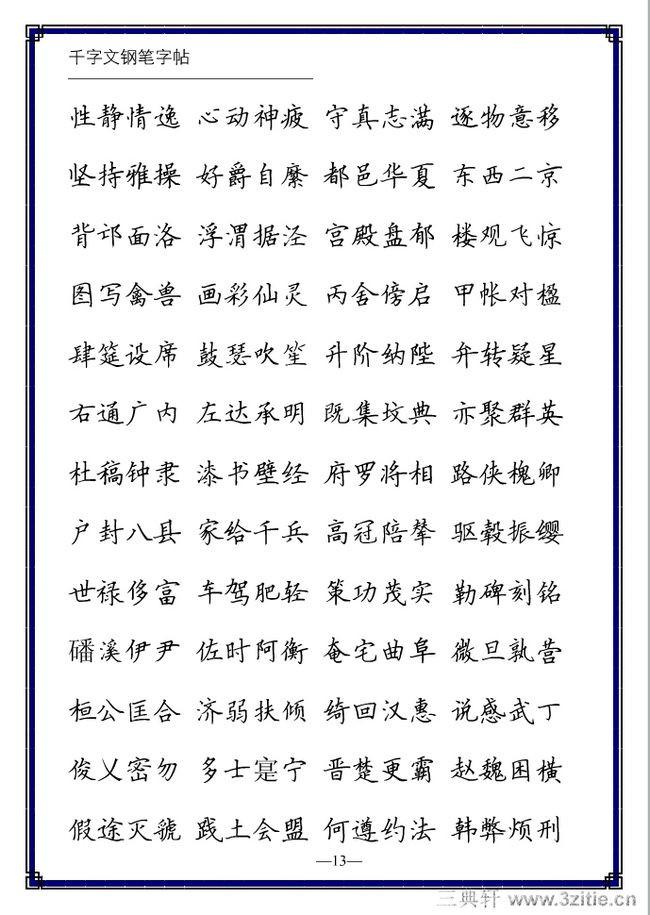 千字文钢笔字帖
性静情逸 心动神疲 守真志满 逐物意移
坚持雅操 好爵自縻 都邑华夏 东西二京
背邙面洛 浮渭据泾 宫殿盘郁 楼观飞惊
图写禽兽 画彩仙灵 丙舍傍启 甲帐对楹
肆筵设席 鼓瑟吹笙 升阶纳陛 弁转疑星
右通广内 左达承明 既集坟典 亦聚群英
杜稿钟隶 漆书壁经 府罗将相 路侠槐卿
户封八县 家给千兵 高冠陪辇 驱毂振缨
世禄侈富 车驾肥轻 策功茂实 勒碑刻铭
磻溪伊尹 佐时阿衡 奄宅曲阜 微旦孰营
桓公匡合 济弱扶倾 绮回汉惠 说感武丁
俊乂密勿 多士寔宁 晋楚更霸 赵魏困横
假途灭虢 践土会盟 何遵约法 韩弊烦刑
—13—
三典轩 www.3zitie.cn